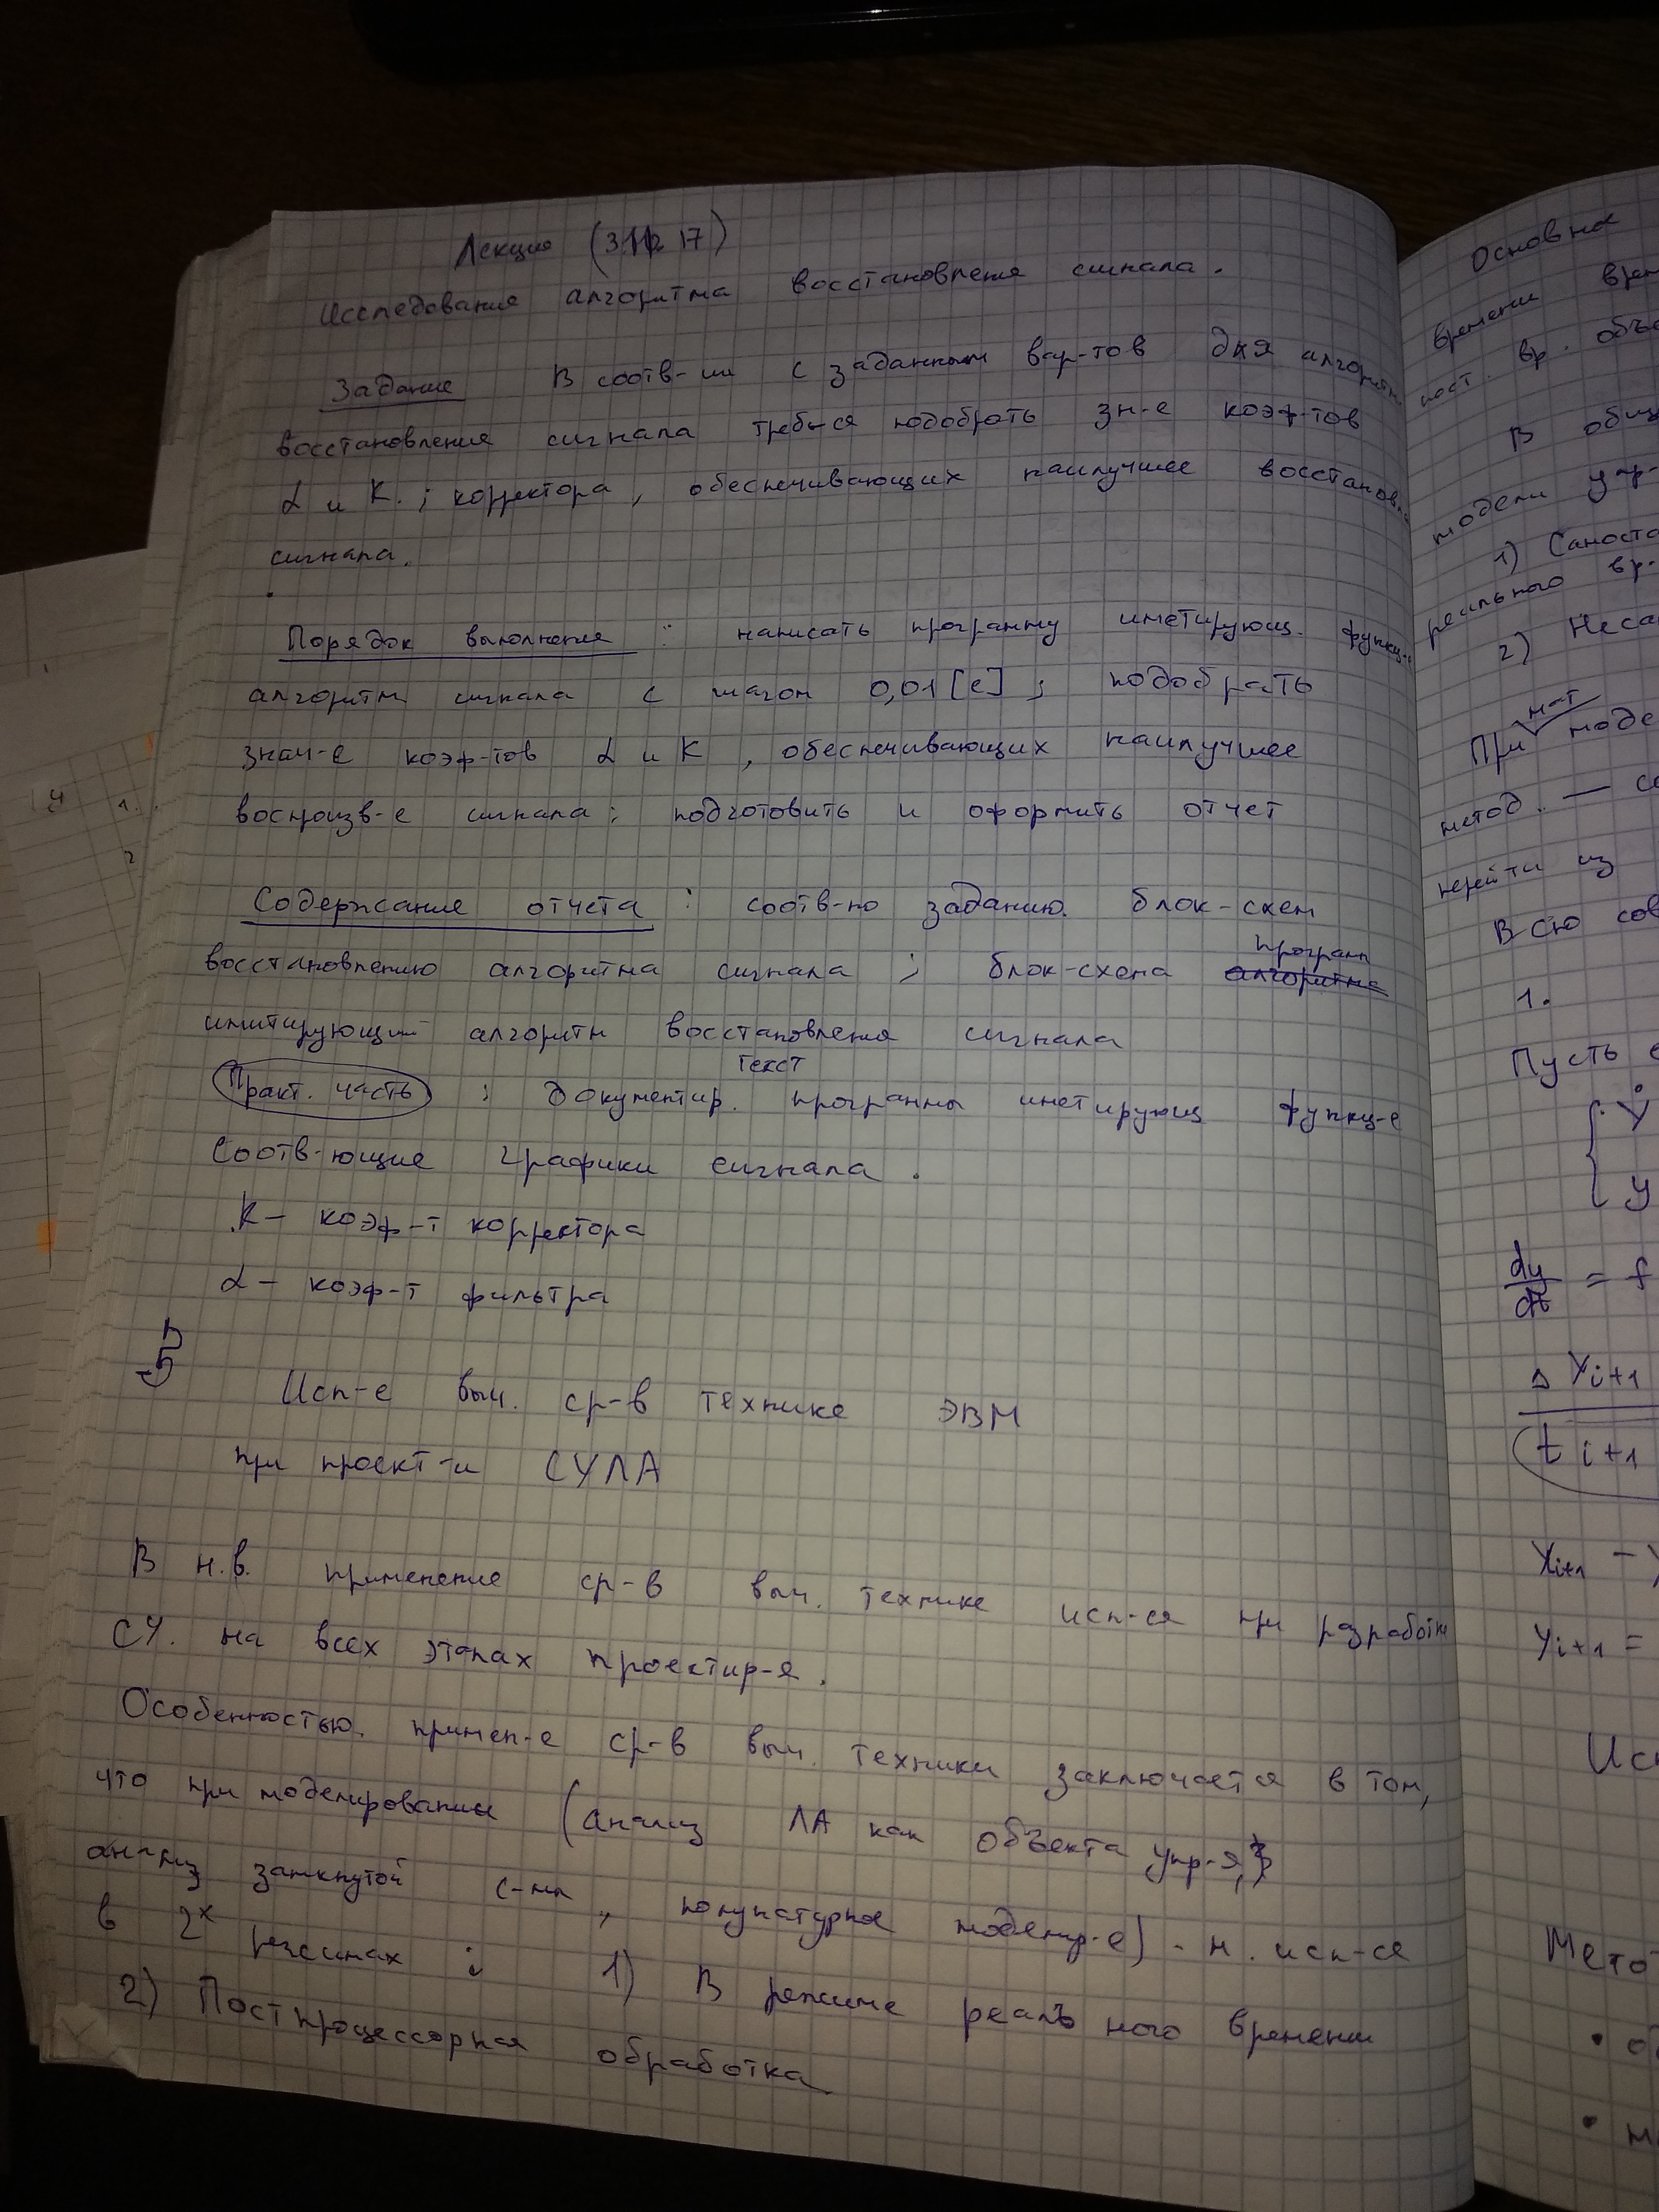 Лекция (17)
Исследование алгоритма восстановления сигнала.
Задание В соотв-ии с заданным вар-тов для алгоритм
восстановления сигнала треб-ся подобрать зн-е коэф-тов
α и К. ; корректора, обеспечивающих наилучшее восстановл
сигнала.
Порядок выполнения : написать программу имитирующ. функц-е
алгоритм сигнала с шагом 0,01 [с] ; подобрать
знач-е коэф-тов α и К , обеспечивающих наилучшее
воспроизв-е сигнала ; подготовить и оформить отчет
Содержание отчета : соотв-но заданию. блок-схем
восстановлению алгоритма сигнала ; блок-схема алгоритма
програм
имитирующий алгоритм восстановления сигнала
Практ. часть ; документир. программы имитирующ функц-е
текст
соотв-ющие графики сигнала .
К – коэф-т корректора
α – коэф-т фильтра
Исп-е выч. ср-в технике ЭВМ
при проект-и СУЛА
В н.в. применение ср-в выч. технике исп-ся при разработк
СУ. на всех этапах проектир-я.
Особенностью. примен-е ср-в выч. техники заключается в том,
что при моделировании (анализ ЛА как объекта упр-я,
анализ замкнутой с-мы, полунатурное моделир-е) - м. исп-ся
в 2х режимах : 1) В режиме реаль ного времени
2) Постпроцессорная обработка
Основна
времени врем
пост. вр. объе
В общ
модели упр-
1) Самосто
реального вр-
2) Неса
мат
При моде
метод. —
перейти из
Всю сов
1.
Пусть
{ Ẏ
y
dy/dt = f
Δ Yi+1
t i+1
Yi+1 –
yi+1 =
Исп
Мето
• об
• м